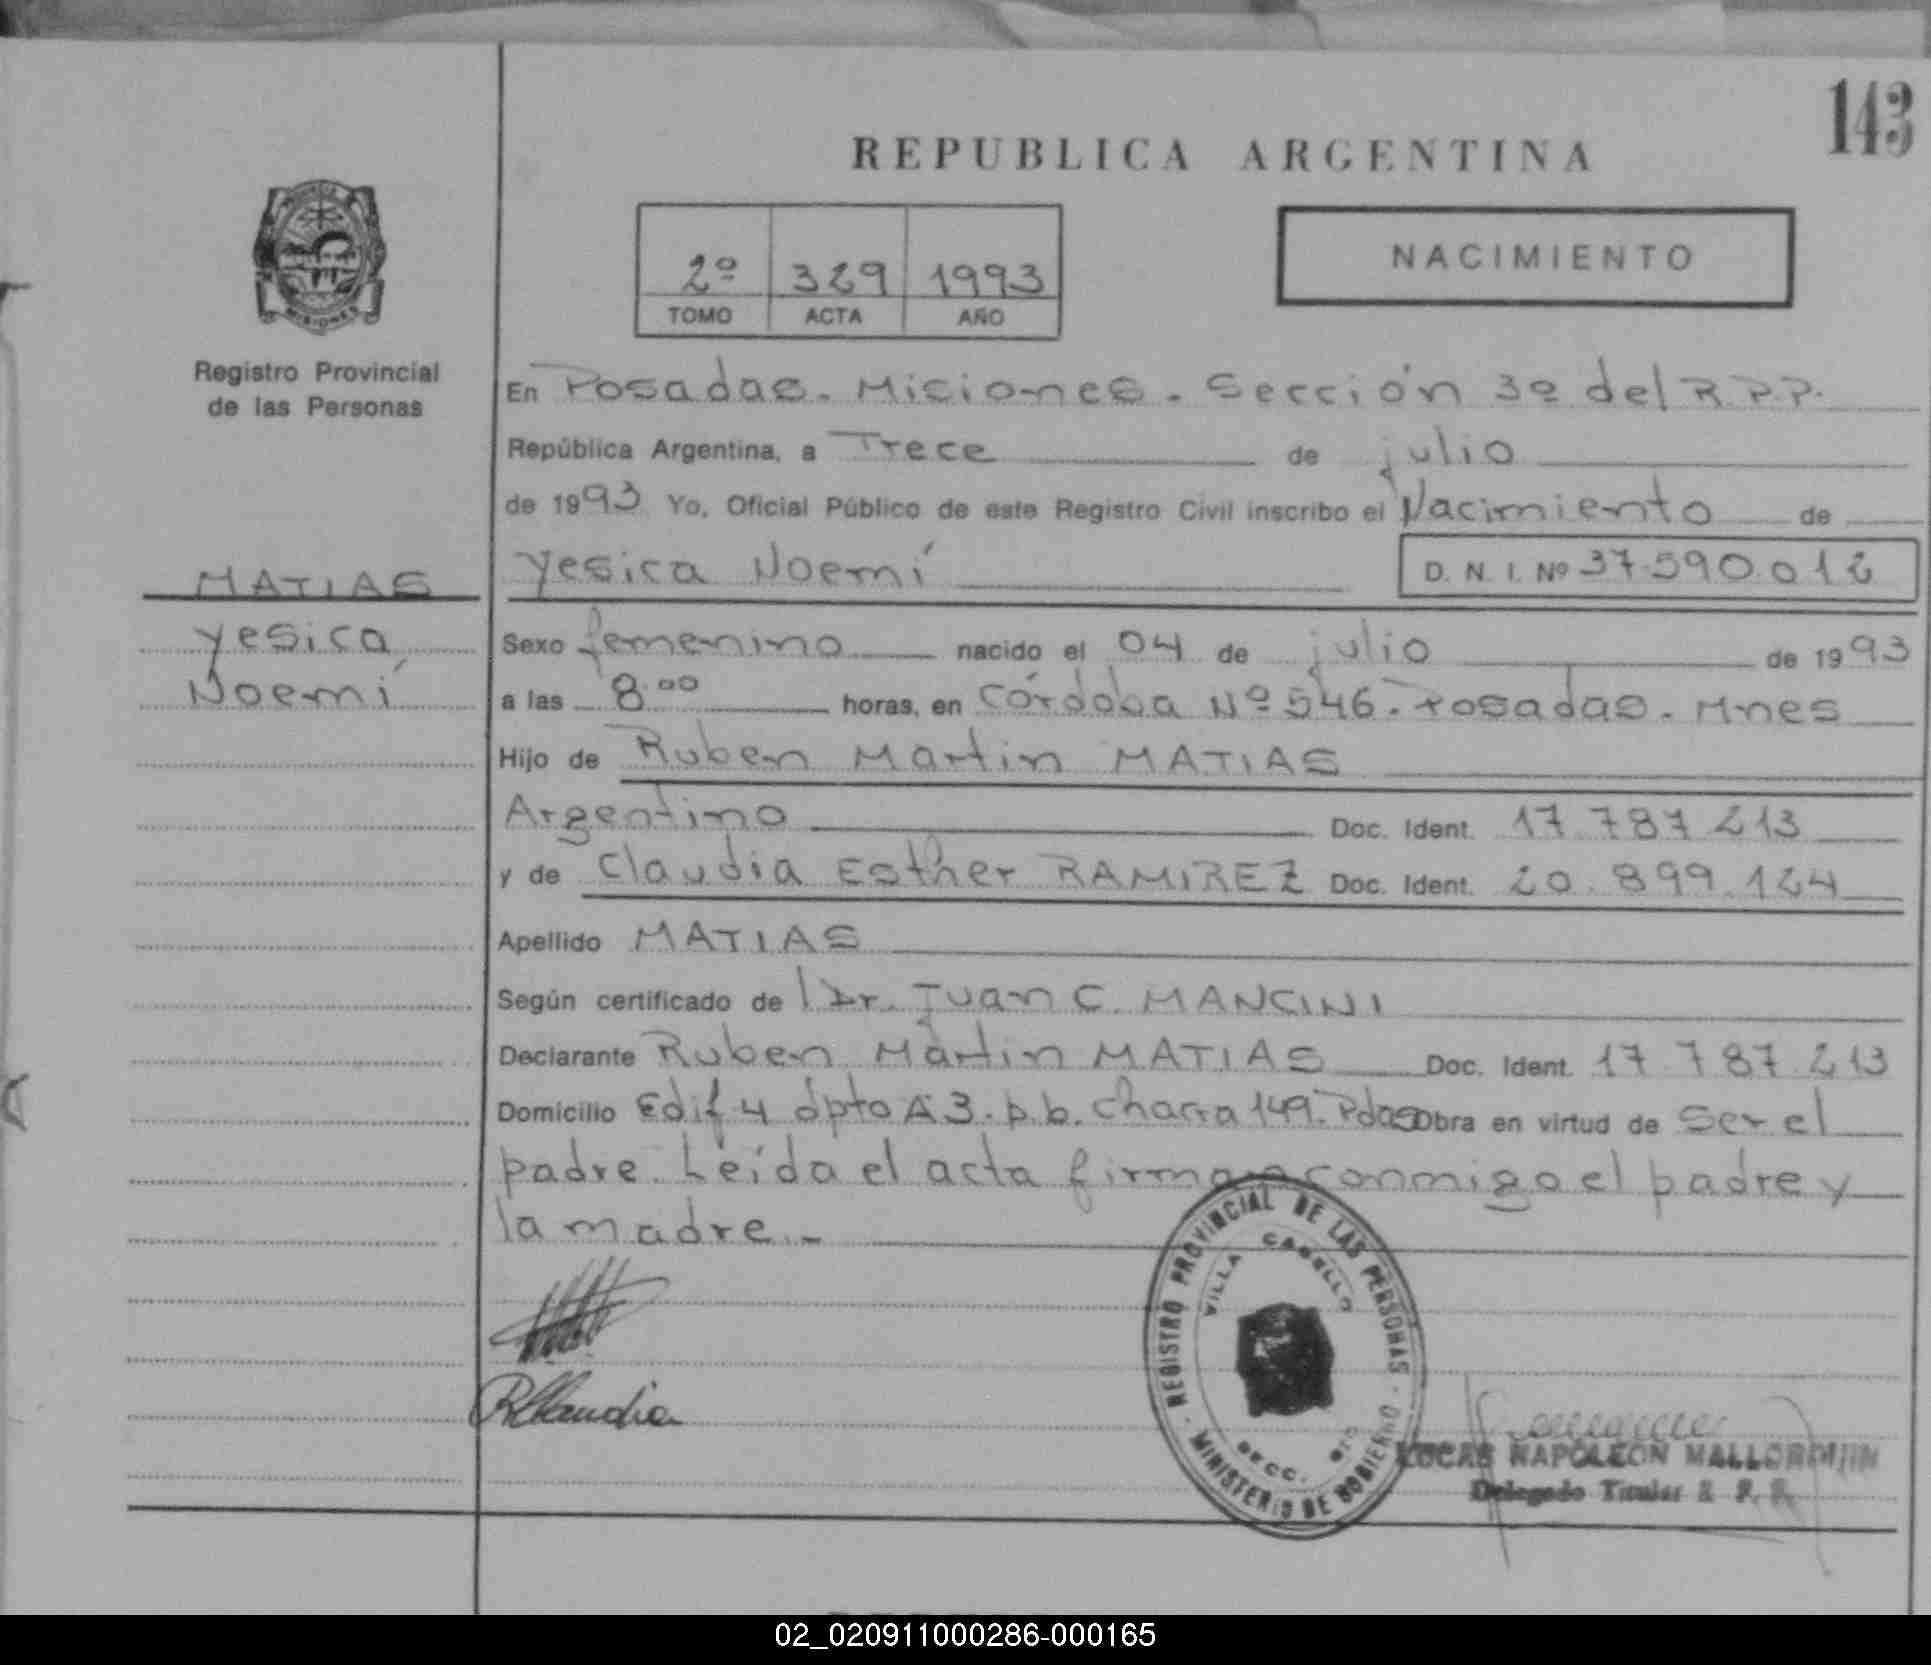 143
REPUBLICA ARGENTINA
2º 329 1993
TOMO ACTA AÑO
NACIMIENTO
MISIONES
Registro Provincial
de las Personas
MATIAS
Yesica
Noemí
En Posadas. Misiones. Sección 3º del R.P.P.
República Argentina, a Trece de julio
de 1993 Yo, Oficial Público de este Registro Civil inscribo el Nacimiento de
Yesica Noemí D. N. I. Nº 37.590.012
Sexo femenino nacido el 04 de julio de 1993
a las 8.00 horas, en Córdoba Nº 546. Posadas. Mnes
Hijo de Ruben Martin MATIAS
Argentino Doc. Ident. 17 787 213
y de Claudia Esther RAMIREZ Doc. Ident. 20.899.124
Apellido MATIAS
Según certificado de l Dr. Juan C. MANCINI
Declarante Ruben Martin MATIAS Doc. Ident. 17 787 213
Domicilio Edif 4 dpto A3. p.b. Chacra 149. Pdas Obra en virtud de ser el
padre. Leída el acta firman conmigo el padre y
la madre.-
REGISTRO PROVINCIAL DE LAS PERSONAS
VILLA CABELLO
SECC.
MINISTERIO DE GOBIERNO
Claudia
LUCAS NAPOLEON
Delegado Titular
02_020911000286-000165